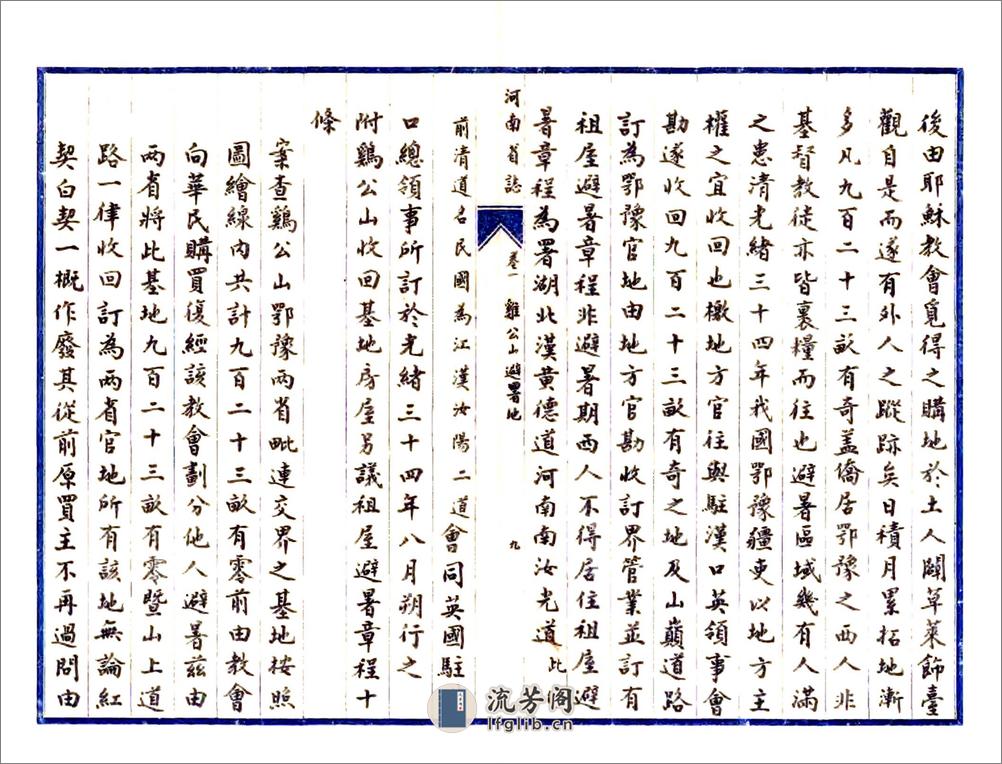 後由耶穌教會覓得之購地於土人闢草萊飾臺
觀自是而遂有外人之蹤跡矣日積月累拓地漸
多凡九百二十三畝有奇蓋僑居鄂豫之西人非
基督教徒亦皆裹糧而往也避暑區域幾有人滿
之患清光緒三十四年我國鄂豫疆吏以地方主
權之宜收回也檄地方官往與駐漢口英領事會
勘遂收回九百二十三畝有奇之地及山巔道路
訂為鄂豫官地由地方官勘收訂界管業並訂有
租屋避暑章程非避暑期西人不得居住租屋避
暑章程為署湖北漢黃德道河南南汝光道此
河南省誌 卷一 雞公山避暑地 九
前清道名民國為江漢汝陽二道會同英國駐
口總領事所訂於光緒三十四年八月朔行之
附鷄公山收回基地房屋另議租屋避暑章程十
條
案查鷄公山鄂豫兩省毗連交界之基地按照
圖繪線內共計九百二十三畝有零前由教會
向華民購買復經該教會劃分他人避暑茲由
兩省將此基地九百二十三畝有零暨山上道
路一律收回訂為兩省官地所有該地無論紅
契白契一概作廢其從前原買主不再過問由
流芳阁
lfglib.cn